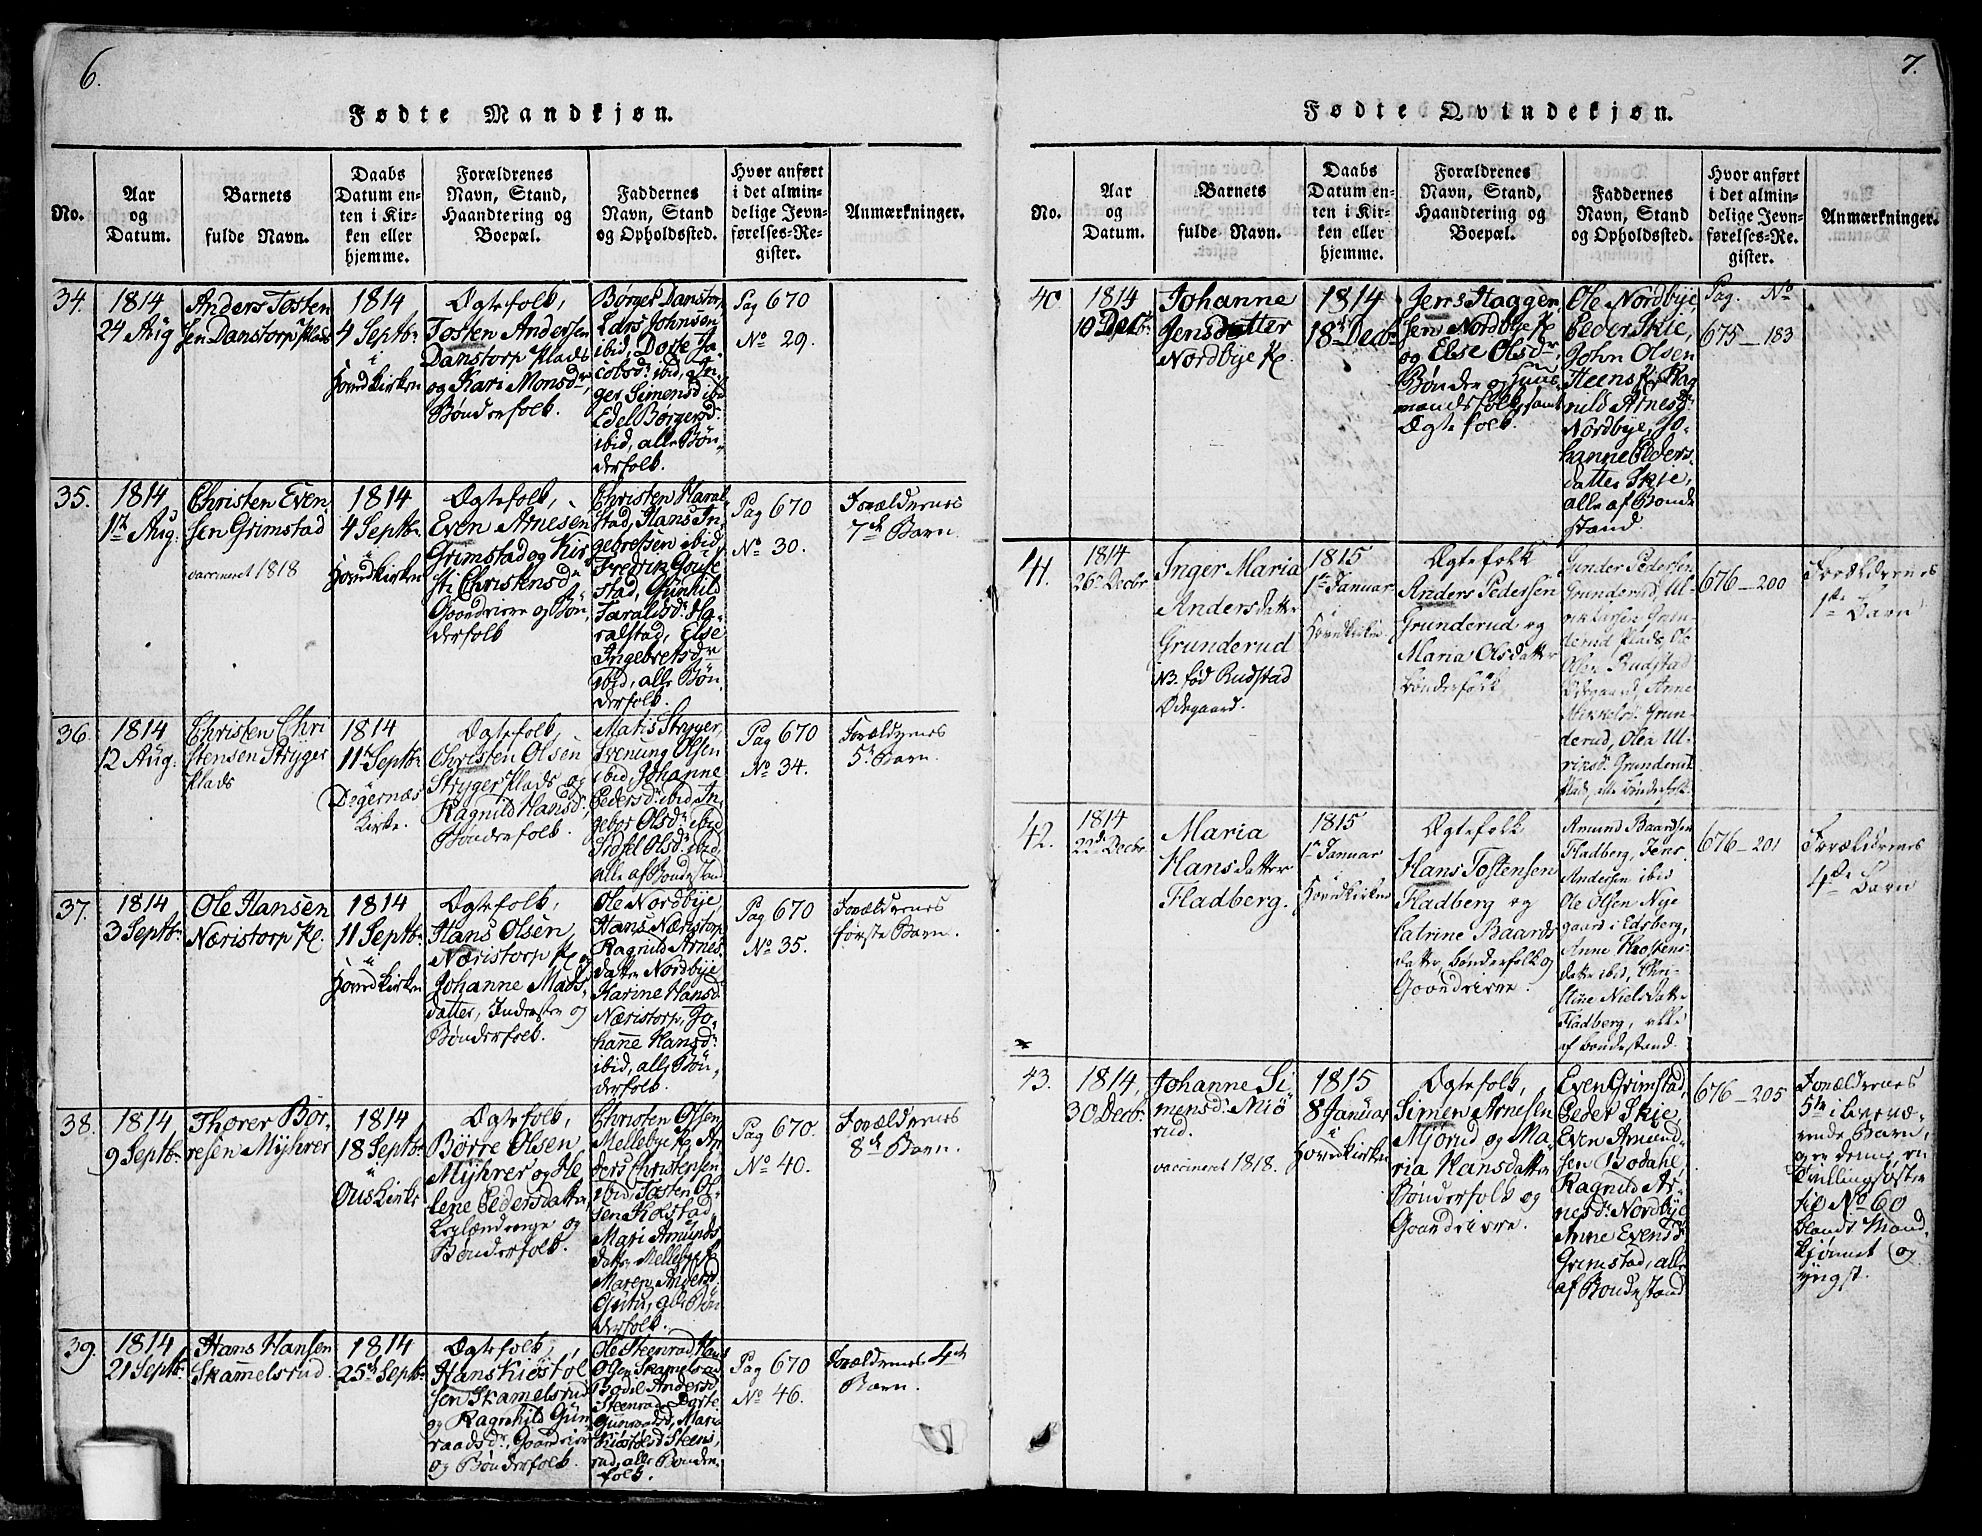 6.
Fødte Mandkjøn.
No.
Aar
og
Datum.
Barnets
fulde Navn.
Daabs
Datum en-
ten i Kir-
ken eller
hjemme.
Forældrenes
Navn, Stand,
Haandtering og
Boepæl.
Faddernes
Navn, Stand
og Opholdssted.
Hvor anført
i det almin-
delige Jevn-
førelses-Re-
gister.
Anmærkninger.
34.
1814
24 Aug
Anders Tosten
sen Danstorp Plads
1814
4 Septbr
i
Hovedkirken
Ægtefolk,
Tosten Andersen
Danstorp Plads
og Kari Monsdr
Bønderfolk.
Børger Danstorp
Lars Johnsen
ibid, Dorte Ja-
cobsdr ibid, In-
ger Simensd ibid
Edel Børgersd:
ibid, alle Bøn-
derfolk.
Pag 670
No 29.
35.
1814
1te Aug:
Christen Even
sen Grimstad
vaccineret 1818
1814
4 Septbr
i
Hovedkirken
Ægtefolk,
Even Arnesen
Grimstad og Kir-
sti Christensdr
Gaardeiere og Bøn-
derfolk
Christen Haral-
stad, Hans In-
gebretsen ibid
Fredrik
stad, Gunhild
Taraldsdr Ha-
ralstad, Else
Ingebretsdr
ibid, alle Bøn-
derfolk.
Pag 670
No 30.
Forældrenes
7de Barn.
36.
1814
12 Aug:
Christen Chri
stensen Stryger
Plads
1814
11te Septbr
Degernæs
Kirke.
Ægtefolk,
Christen Olsen
Stryger Plads og
Ragnild Hansdr
Bønderfolk.
Matis Stryger,
Olsen
ibid, Johanne
Pedersdr ibid In-
gebor Olsdr ibid
Sidsel Olsdr ibid,
alle af Bondestand
Pag 670
No 34.
Forældrenes
5te Barn.
37.
1814
3 Septbr
Ole Hansen
Næristorp Pl.
1814
11 Septbr
i
Hovedkirken
Ægtefolk,
Hans Olsen,
Næristorp Pl og
Johanne Mads-
datter, Inderster og
Bønderfolk.
Ole Nordbye,
Hans Næristorp
Ragnild Arnes
datter Nordbye
Karine Hansdr
Næristorp, Jo-
hanne Hansdr
ibid, alle Bøn-
derfolk.
Pag 670
No 35.
Forældrenes
første Barn.
38.
1814,
9 Septbr
Thorer Bør-
resen Myhrer
1814
18 Septbr
i
Øus Kirke
Ægtefolk,
Børre Olsen
Myhrer og He
lene Pedersdatter,
Leylændinge og
Bønderfolk.
Christen Olsen
Mellebye Pl, An
ders Christensen
ibid, Tosten Ol-
sen Kolstad,
Mari Amunds
datter Mellebye Pl
Maren Andersd:
alle Bøn
derfolk.
Pag 670.
No 40.
Forældrenes
8de Barn.
39.
1814
21 Septbr
Hans Hansen
Skammelsrud
1814
25de Septbr
Ægtefolk,
Hans Kiøstol
sen Skamelsrud
og Ragnhild Gun-
raadsdr, Gaardeiere
og Bønderfolk.
Ole Steenrud Hans
Olsen Skamelsrud
Bodil Andersd
Steenrud, Dorte
Gunraadsd, Mari
Kiøstolsd Steens-
rud, alle Bønder-
folk.
Pag 670
No 46.
Forældrenes 4de
Barn.
7.
Fødte Qvindekjøn.
No.
Aar
og
Datum.
Barnets
fulde Navn.
Daabs
Datum en-
ten i Kir-
ken eller
hjemme.
Forældrenes
Navn, Stand,
Haandtering og
Boepæl.
Faddernes
Navn, Stand
og Opholdssted.
Hvor anført
i det almin-
delige Jevn-
førelses-Re-
gister.
Anmærkninger.
40.
1814
10 Decbr
Johanne
Jensdatter
Nordbye Pl.
1814
18de Decbr
Jens Haagen
sen Nordbye Pl
og Else Olsdr
Bønder og Huus-
mandsfolk samt
Ægtefolk.
Ole Nordbye,
Peder Skje,
John Olsen
Steens Pl Rag
nild Arnesdr
Nordbye, Jo-
hanne Peders-
datter Skje,
alle af Bonde
stand
Pag. No
675 - 183
41.
1814
26de Decbr
Inger Maria
Andersdatter
Grunderud
NB. fød Rudstad
Ødegaard.
1815
1te Januar
i
Hovedkirken
Ægtefolk
Anders Pedersen
Grunderud og
Maria Olsdatter
Bønderfolk
Gunder Pedersen
Grunderud, Ul-
rik Larsen Grun-
derud Plads, Ole
Olsen Rudstad
Ødegaard, Anne
Mikkelsd: Grun-
derud, Olea Ul-
riksd: Grunderud
Plad, alle Bønderfolk
676 - 200
Forældrenes
1te Barn
42.
1814
22de Decbr
Maria
Hansdatter
Fladberg.
1815
1te Januar
i
Hovedkirken
Ægtefolk
Hans Tostensen
Fladberg og
Catrine Baards
datter, Bønderfolk og
Gaardeiere.
Amund Baardsen
Fladberg, Jens
Andersen ibid
Ole Olsen Nye
gaard i Edsberg,
Anne Thostens-
datter ibid, Chri-
stine Nielsdatter
Fladberg, alle
af Bondestand.
676 - 201
Forældrenes
4de Barn
43.
1814,
30 Decbr
Johanne Si
mensdr Miø
rud.
vaccineret 1818.
1815
8 Januar
i
Hovedkirken
Ægtefolk,
Simen Arnesen
Mjørud og Ma-
ria Hansdatter
Bønderfolk og
Gaardeiere.
Even Grimstad,
Peder Skje
Even Amund-
sen Bodahl,
Ragnild Ar-
nesdr Nordbye
Anne Evensdr
Grimstad, alle
af Bondestand
676 - 205
Forældrenes
5te i Live væ-
rende Barn,
og er denne en
Tvillingsøster
til No 60
blandt Mand-
kjønnet og
yngst.